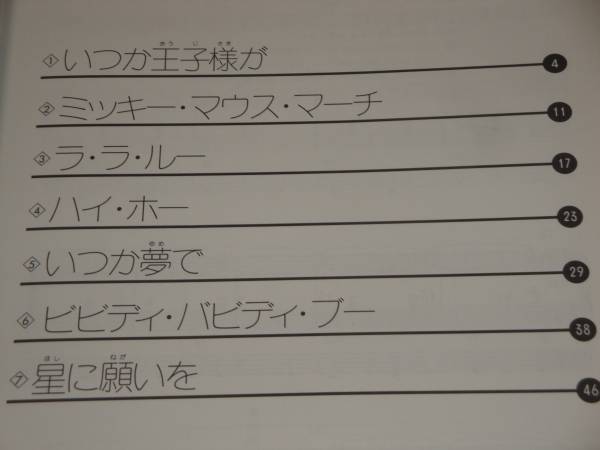 ① いつか王子様が 4
② ミッキー・マウス・マーチ 11
③ ラ・ラ・ルー 17
④ ハイ・ホー 23
⑤ いつか夢で 29
⑥ ビビディ・バビディ・ブー 38
⑦ 星に願いを 46